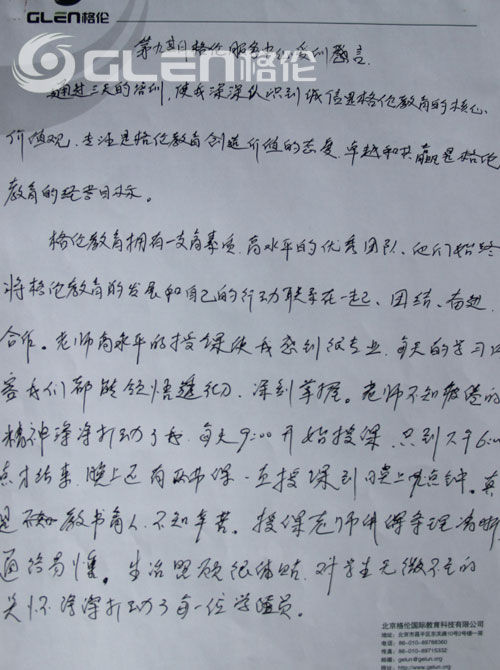 GLEN格伦
GLEN格伦
第九期格伦服务中心受训感言
通过三天的培训,使我深深认识到诚信是格伦教育的核心
价值观,专注是格伦教育创造价值的态度,卓越和共赢是格伦
教育的经营目标。
格伦教育拥有一支高素质,高水平的优秀团队、他们始终
将格伦教育的发展和自己的行动联系在一起、团结、奋进、
合作。老师高水平的授课使我感到很专业,每天的学习内
容我们都能领悟透彻、深刻掌握。老师不知疲倦的
精神深深打动了我,每天9:00开始授课,只到下午6:00
点才结束,晚上还有两节课,一直授课到晚上九点钟。真
是教书育人,不知辛苦。授课老师讲课条理清晰
通俗易懂。生活照顾很体贴,对学生无微不至的
关怀深深打动了每一位学员。
北京格伦国际教育科技有限公司
地址:北京市昌平区
电话:86-010-89766360
传真:86-010-89715332
邮箱:gelun@gelun.org
网址:http://www.gelun.org